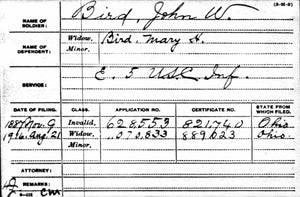 (3-M-9)
NAME OF SOLDIER: Bird, John W.
NAME OF DEPENDENT: Widow, Bird, Mary H.
Minor,
SERVICE: E. 5 U.S.C. Inf.
DATE OF FILING. CLASS. APPLICATION NO. CERTIFICATE NO. STATE FROM WHICH FILED.
1887 Nov. 9 Invalid, 628,553 821,740 Ohio.
1916 Aug. 21 Widow, 1,070,833 889,023 Ohio.
Minor,
ATTORNEY:
REMARKS: cm